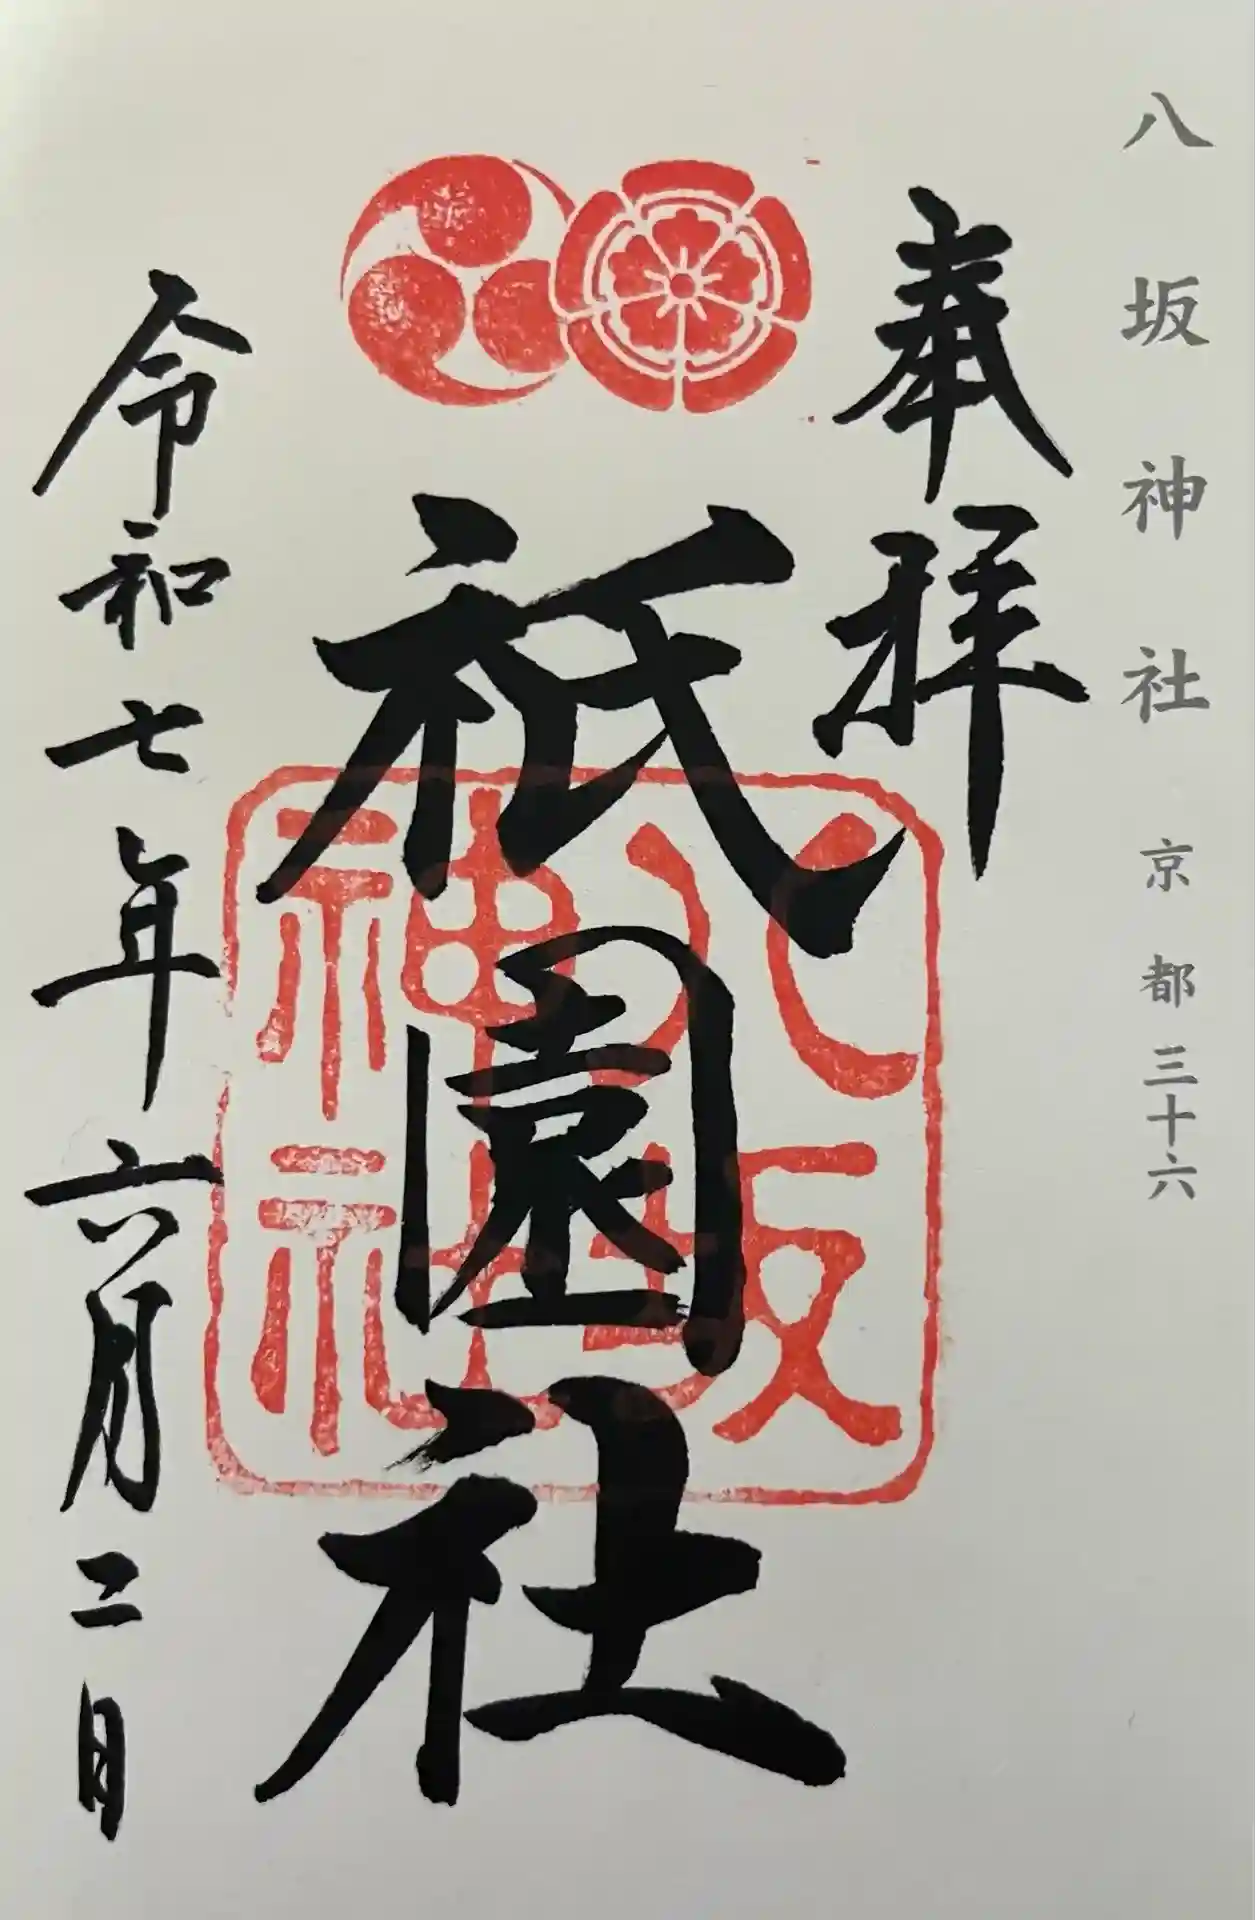 八坂神社 京都三十六
奉拝
祇園社
八坂神社
令和七年六月二日